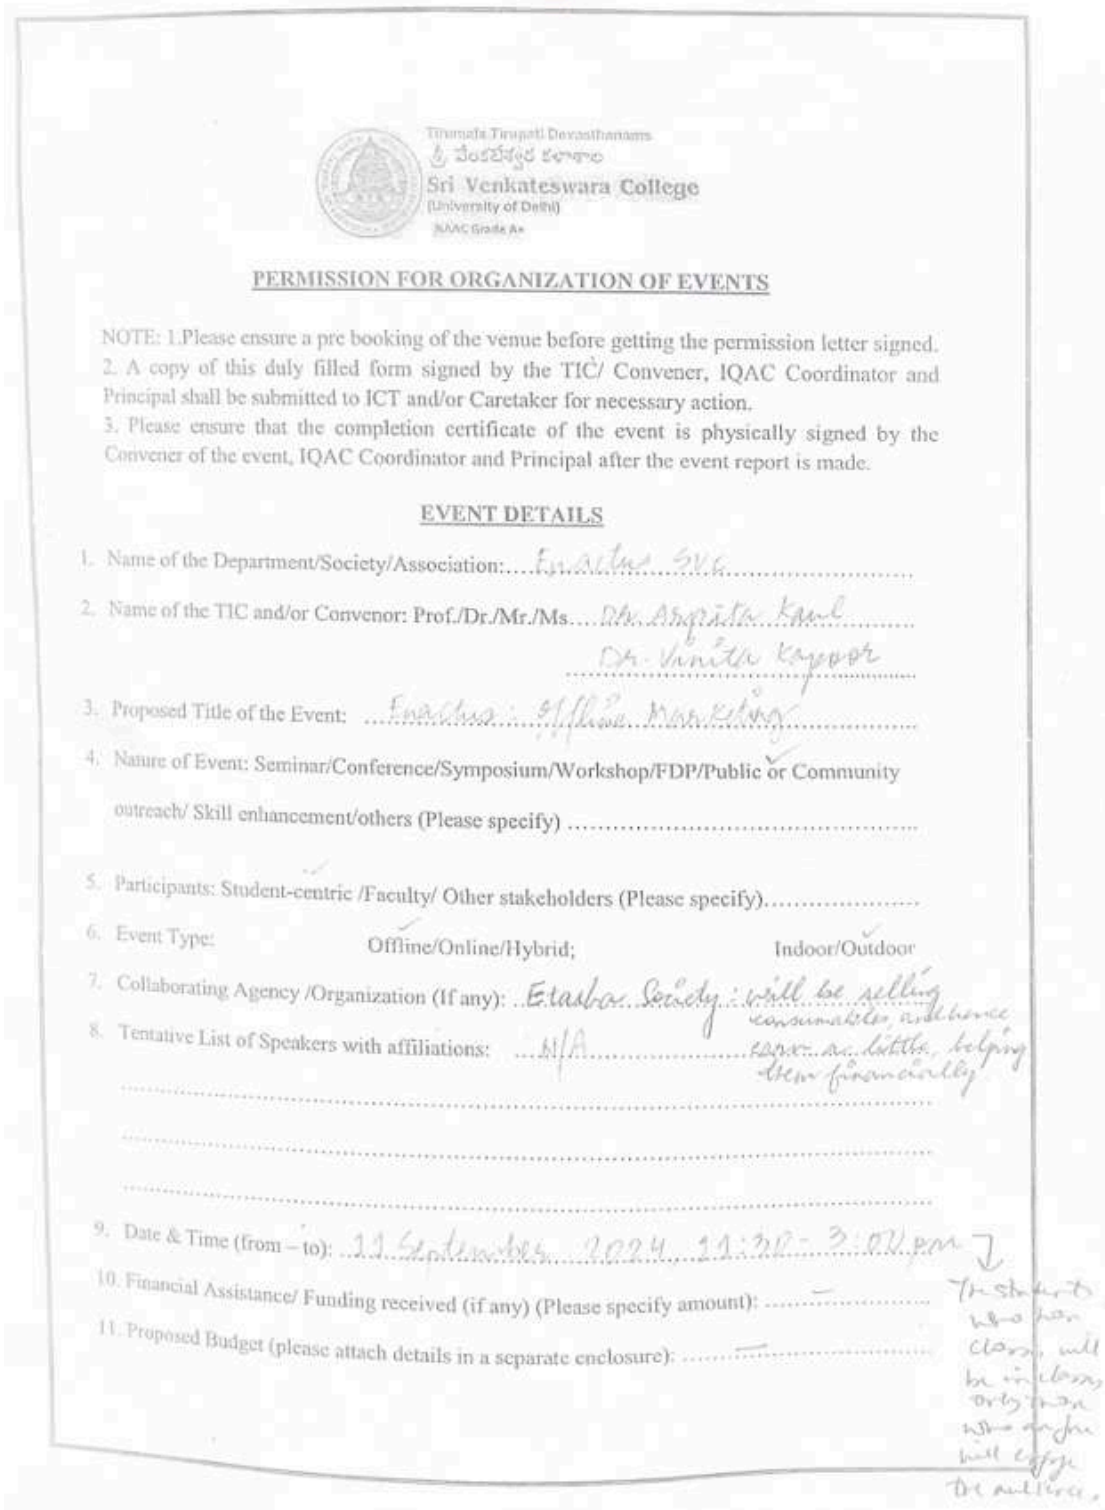 Tirumala Tirupati Devasthanams
శ్రీ వేంకటేశ్వర కళాశాల
Sri Venkateswara College
(University of Delhi)
NAAC Grade A+
PERMISSION FOR ORGANIZATION OF EVENTS
NOTE: 1.Please ensure a pre booking of the venue before getting the permission letter signed.
2. A copy of this duly filled form signed by the TIC/ Convener, IQAC Coordinator and
Principal shall be submitted to ICT and/or Caretaker for necessary action.
3. Please ensure that the completion certificate of the event is physically signed by the
Convener of the event, IQAC Coordinator and Principal after the event report is made.
EVENT DETAILS
1. Name of the Department/Society/Association: Enactus SVC
2. Name of the TIC and/or Convenor: Prof./Dr./Mr./Ms. Dr. Arpita Kaul
Dr. Vinita Kapoor
3. Proposed Title of the Event: Enactus: Offline Marketing
4. Nature of Event: Seminar/Conference/Symposium/Workshop/FDP/Public or Community
outreach/ Skill enhancement/others (Please specify)
5. Participants: Student-centric /Faculty/ Other stakeholders (Please specify)
6. Event Type: Offline/Online/Hybrid; Indoor/Outdoor
7. Collaborating Agency /Organization (If any): Etasha Society: will be selling
consumables, and hence
8. Tentative List of Speakers with affiliations: N/A earn a little, helping
them financially
9. Date & Time (from – to): 11 September 2024, 11:30 - 3:00 pm
10. Financial Assistance/ Funding received (if any) (Please specify amount): —
11. Proposed Budget (please attach details in a separate enclosure): —
The students
who
class, will
be in class,
only
who
will
the